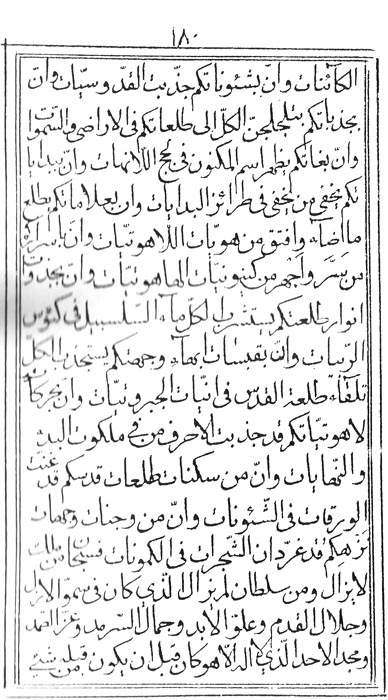 ١٨٠
الكائنات وان بشئوناتكم جذبت القدوسيات وان
بجذباتكم يتلجلجن الكل الى طلعاتكم فى الاراضى والسموات
وان بغاتكم يظهر اسم المكنون فى لجج اللانهايات وان ببدايا
تكم يخفى من يخفى فى طرائز البدايات وان بعلاماتكم يطلع
ما اضاء وافنق من هويات اللاهوتيات وان باسراركم
من يسر واجهر من كينونيات الهاهوتيات وان بجذوات
انوار طلعتكم يستشرب الكل ماء السلسبيل فى كئوس
الربيات وان بقبسات ابهاء وجهتكم يستجذب الكل
تلقاء طلعة القدس فى انيات الجبروتيات وان بحركات
لاهوتياتكم قد جذبت الاحرف من فى ملكوت البدء
والنهايات وان من سكنات طلعات قدسكم قد غنت
الورقات فى الشئونات وان من وجنات وجهات
نزهكم قد غردان الشجرات فى الكمونات فسبحان من ملك
لايزال ومن سلطان لم يزال الذى كان فى سمو الازل
وجلال القدم وعلو الابد وجمال السرمد وعز الصمد
ومجد الاحد الذى لا اله الا هو كان قبل ان يكون قبله من شئ